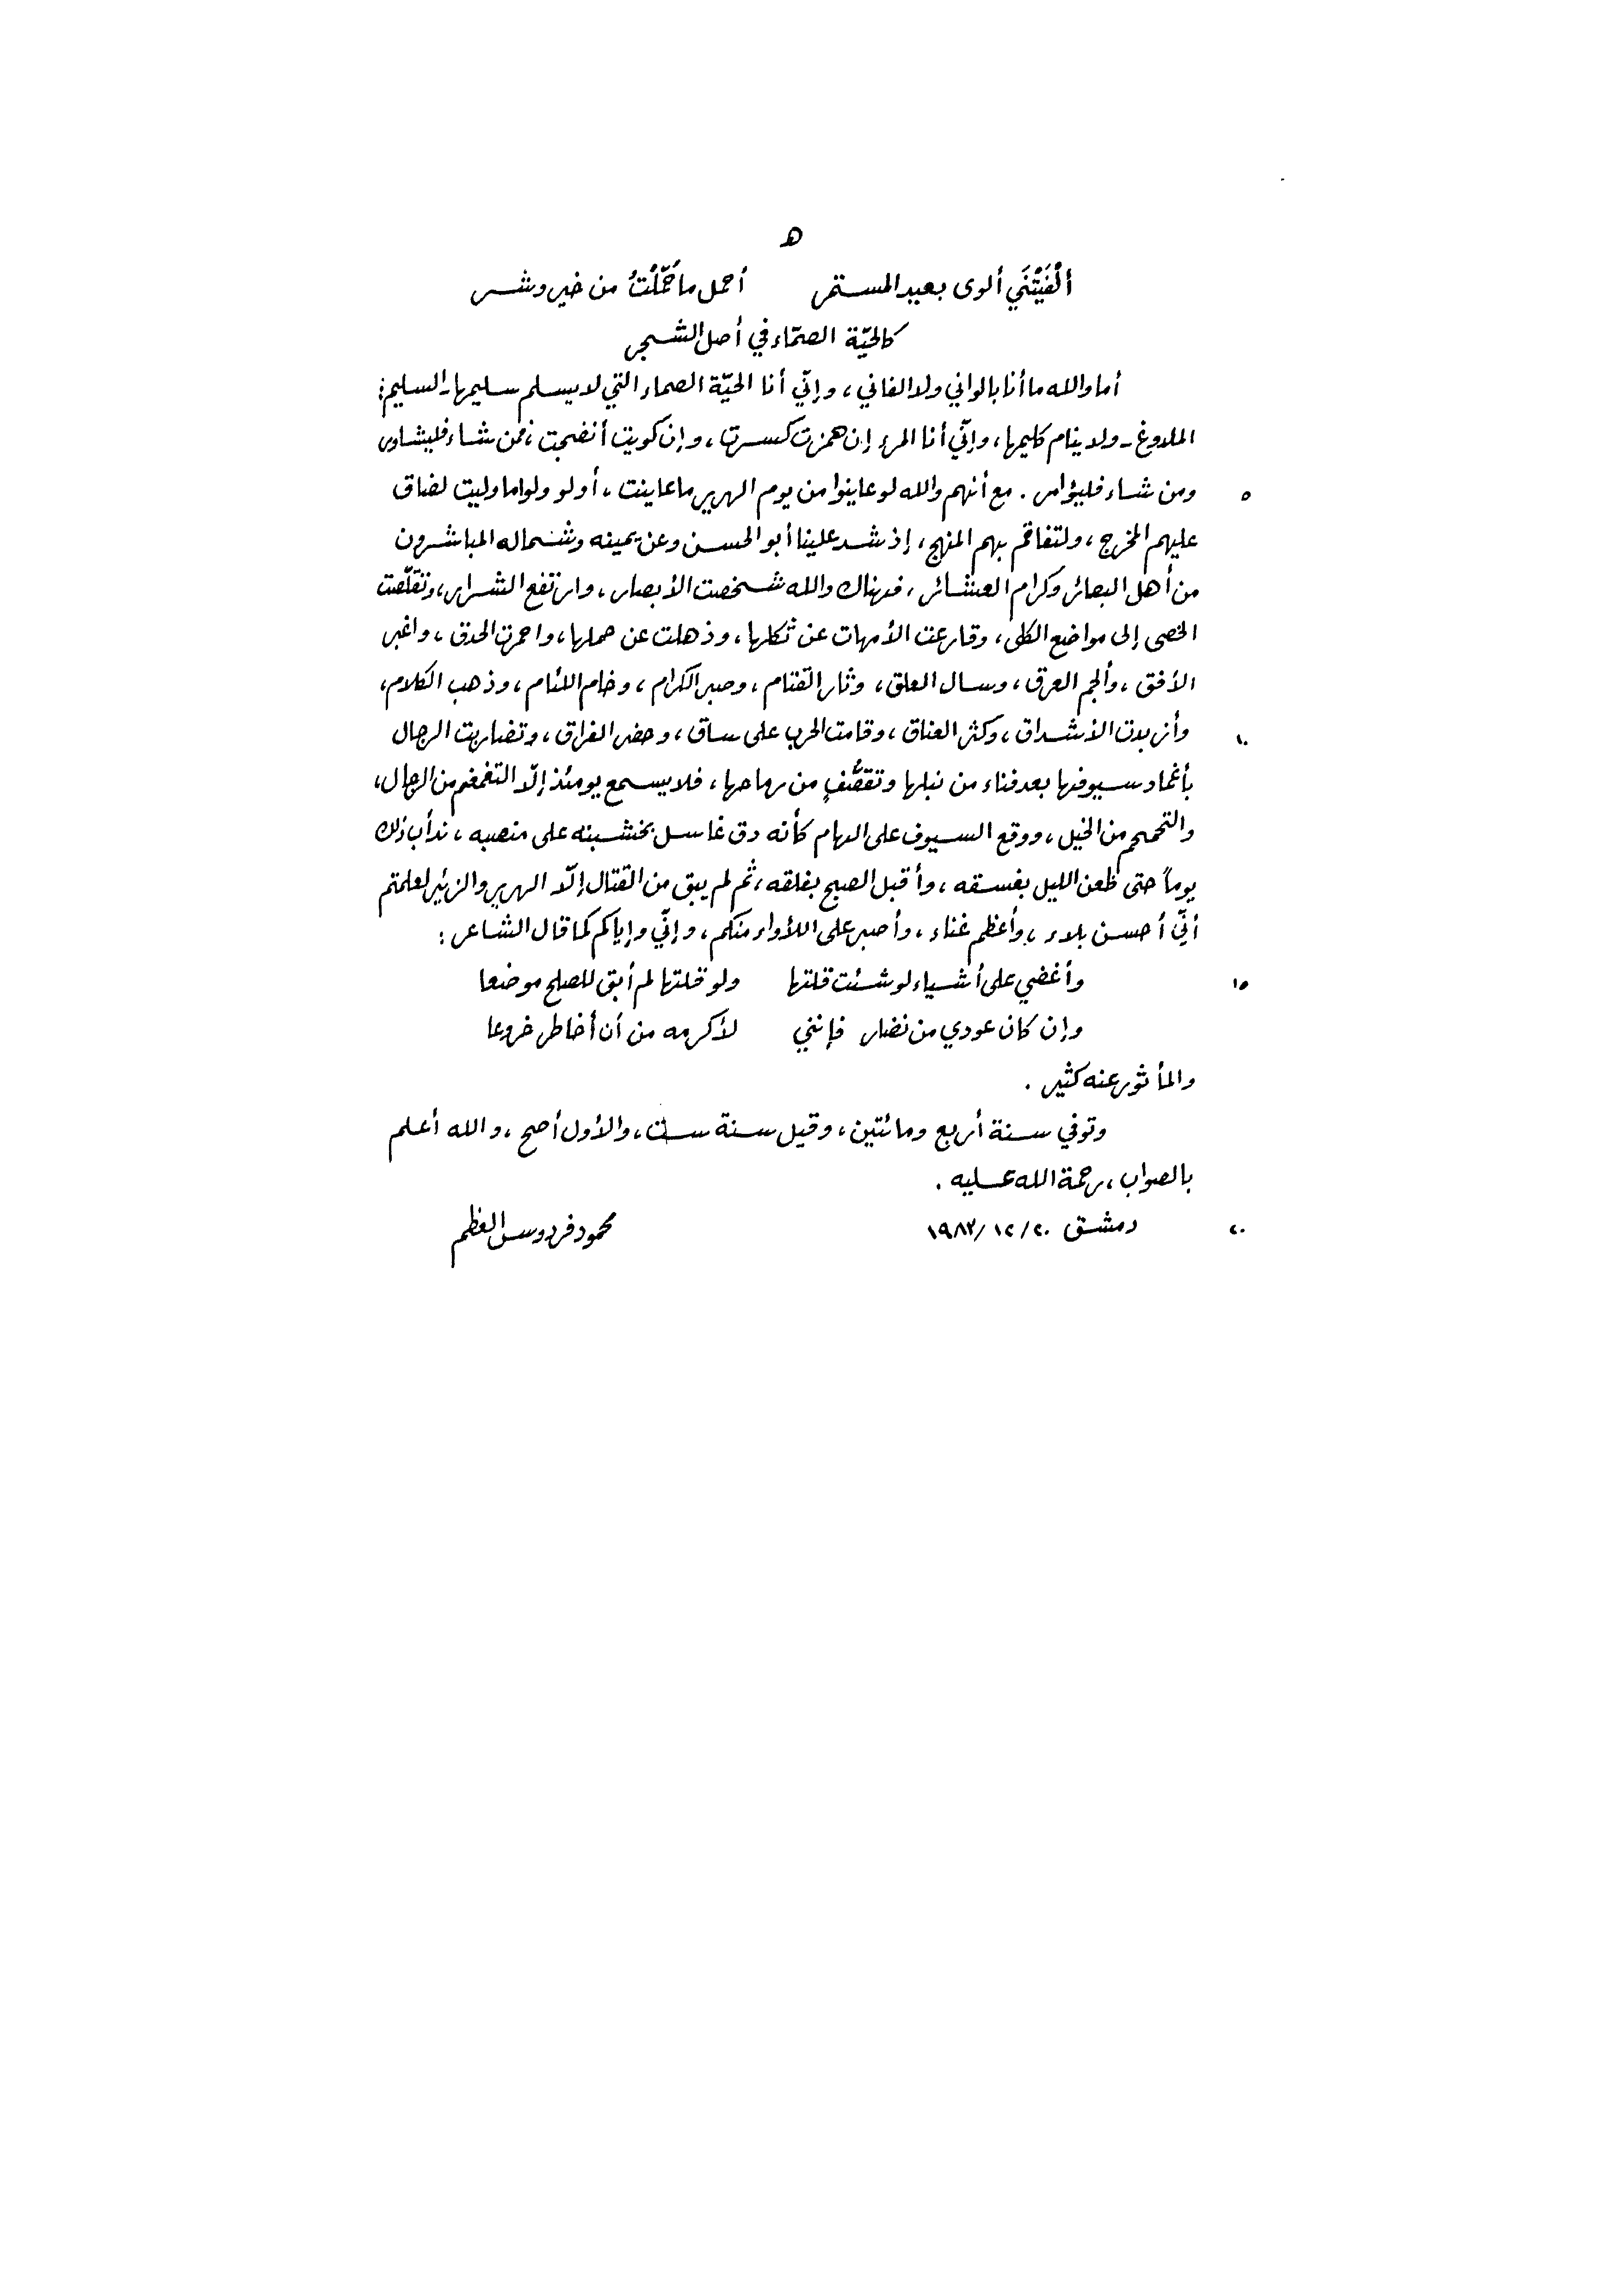 ه
أَلْفَيْتَنَي ألوى بعيد المستمر أحمل ما حُمِّلْتُ من خير وشر
كالحيّة الصمّاء في أصل الشجر
أما والله ما أنا بالواني ولا الفاني، وإنّي أنا الحيّة الصماء التي لا يسلم سليمها - السليم:
الملدوغ - ولا ينام كليمها، وإنّي أنا المرء إن همزت كسرت، وإن كويت أنضجت، فمن شاء فليشاور
ومن شاء فليؤامر. مع أنهم والله لو عاينوا من يوم الهرير ما عاينت، أو لو ولوا ما وليت لضاق ٥
عليهم المخرج، ولتفاقم بهم المنهج، إذ شد علينا أبو الحسن وعن يمينه وشماله المباشرون
من أهل البصائر وكرام العشائر، فهناك والله شخصت الأبصار، وارتفع الشرار، وتقلّصت
الخصى إلى مواضع الكلى، وقارعت الأمهات عن ثكلها، وذهلت عن حملها، واحمرت الحدق، واغبر
الأفق، وألجم العرق، وسال العلق، وثار القتام، وصبر الكرام، وخام اللئام، وذهب الكلام،
وأزبدت الأشداق، وكثر العناق، وقامت الحرب على ساق، وحضر الفراق، وتضاربت الرجال ١٠
بأغماد سيوفها بعد فناء من نبلها وتقصُّفٍ من رماحها، فلا يسمع يومئذ إلّا التغمغم من الرجال،
والتحمحم من الخيل، ووقع السيوف على الهام كأنه دق غاسل بخشبته على منصبه، ندأب ذلك
يوماً حتى ظعن الليل بغسقه، وأقبل الصبح بفلقه، ثم لم يبق من القتال إلّا الهرير والزئير لعلمتم
أنّي أحسن بلاء، وأعظم غناء، وأصبر على اللأواء منكم، وإنّي وإياكم كما قال الشاعر:
وأغضي على أشياء لو شئت قلتها ولو قلتها لم أبق للصلح موضعا ١٥
وإن كان عودي من نضار فإنني لأكرمه من أن أخاطر خروعا
والمأثور عنه كثير.
وتوفي سنة أربع ومائتين، وقيل سنة ست، والأول أصح، والله أعلم
بالصواب، رحمة الله عليه.
دمشق ٢٠/١٢/١٩٨٣ محمود فردوس العظم ٢٠